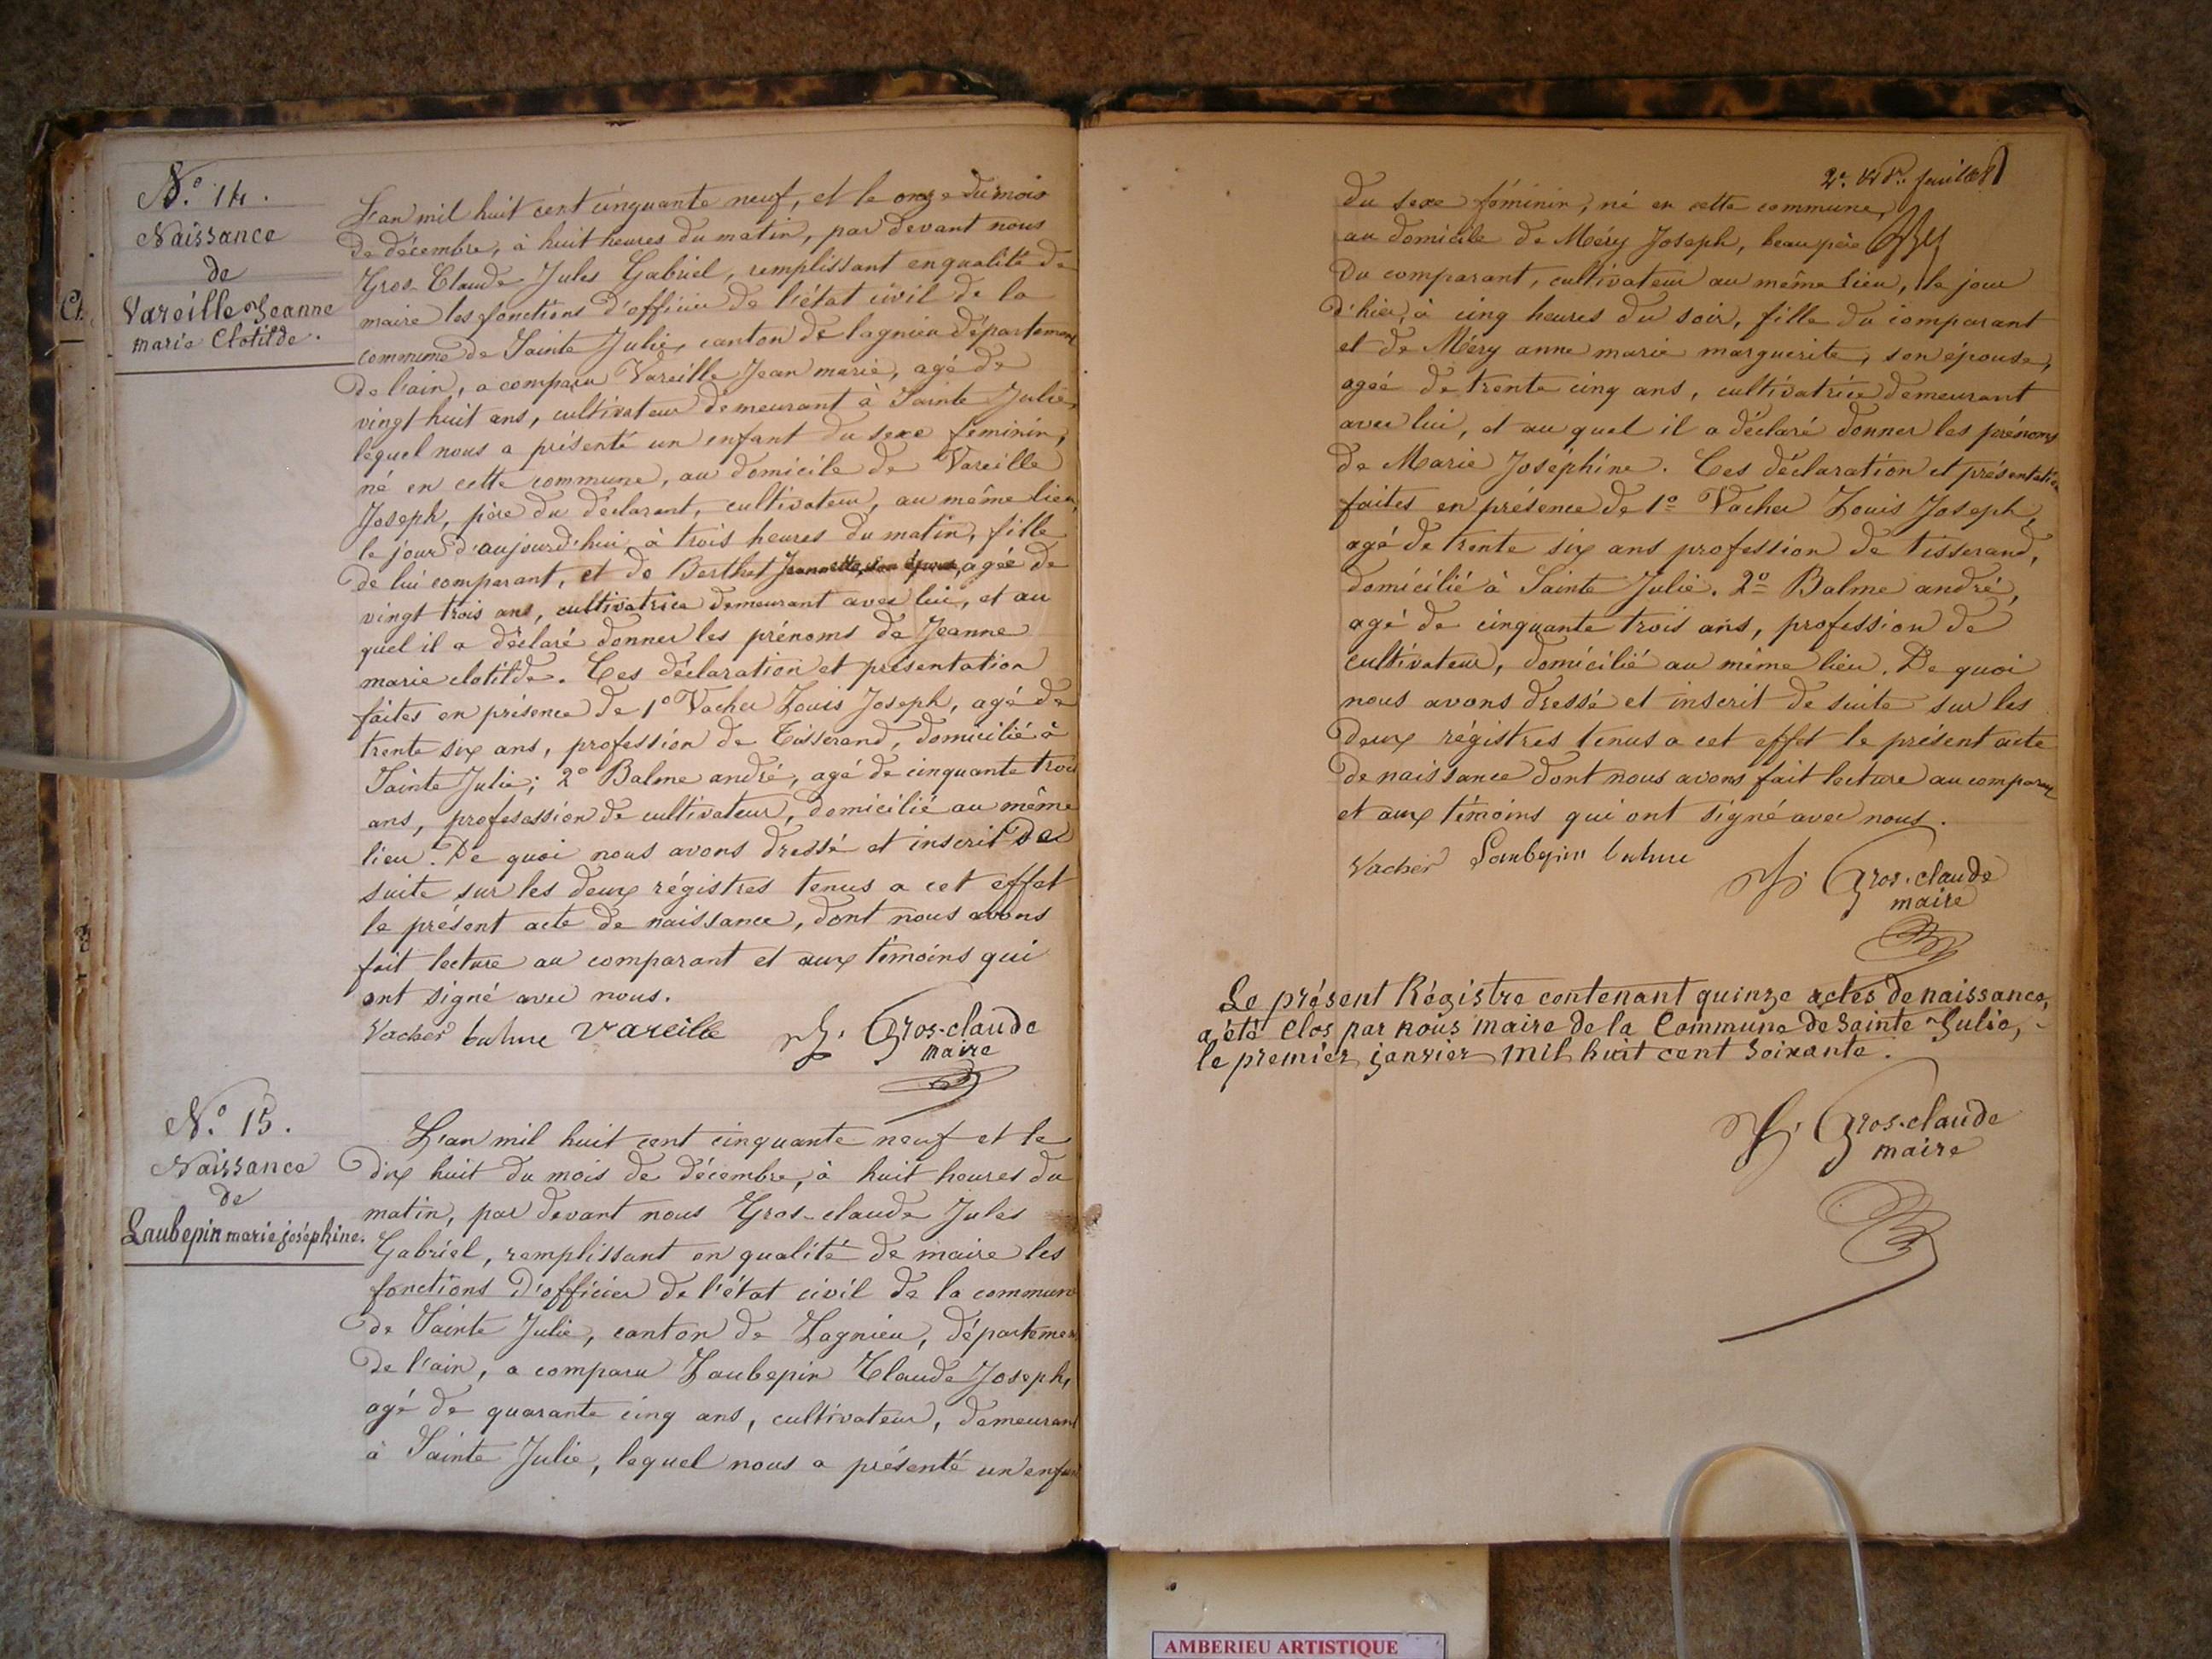 N.º 14.
Naissance
de
Vareille Jeanne
marie Clotilde.
L'an mil huit cent cinquante neuf, et le onze du mois
de décembre, à huit heures du matin, par devant nous
Gros-Claude Jules Gabriel, remplissant en qualité de
maire les fonctions d'officier de l'état civil de la
commune de Sainte Julie, canton de lagnieu département
de l'ain, a comparu Vareille Jean marie, agé de
vingt huit ans, cultivateur demeurant à Sainte Julie,
lequel nous a présenté un enfant du sexe feminin,
né en cette commune, au domicile de Vareille
Joseph, père du déclarant, cultivateur, au même lieu,
le jour d'aujourd'hui, à trois heures du matin, fille
de lui comparant, et de Berthet Jeannette, son épouse, agée de
vingt trois ans, cultivatrice demeurant avec lui, et au
quel il a déclaré donner les prénoms de Jeanne
marie clotilde. Ces déclaration et présentation
faites en présence de 1º Vacher Louis Joseph, agé de
trente six ans, profession de Tisserand, domicilié à
Sainte Julie; 2º Balme andré, agé de cinquante trois
ans, profesession de cultivateur, domicilié au même
lieu. De quoi nous avons dressé et inscrit de
suite sur les deux régistres tenus a cet effet
le présent acte de naissance, dont nous avons
fait lecture au comparant et aux témoins qui
ont signé avec nous.
Vacher balme Vareille J. Gros-claude
maire
N.º 15.
Naissance
de
Laubepin marie joséphine.
L'an mil huit cent cinquante neuf et le
dix huit du mois de décembre, à huit heures du
matin, par devant nous Gros-claude Jules
Gabriel, remplissant en qualité de maire les
fonctions d'officier de l'état civil de la commune
de Sainte Julie, canton de Lagnieu, département
de l'ain, a comparu Laubepin Claude Joseph,
agé de quarante cinq ans, cultivateur, demeurant
à Sainte Julie, lequel nous a présenté un enfant
feuillet
du sexe féminin, né en cette commune,
au domicile de Méry Joseph, beau père
du comparant, cultivateur au même lieu, le jour
d'hier, à cinq heures du soir, fille du comparant
et de Méry anne marie marguerite, son épouse,
agée de trente cinq ans, cultivatrice demeurant
avec lui, et au quel il a déclaré donner les prénoms
de Marie Joséphine. Ces déclaration et présentation
faites en présence de 1º Vacher Louis Joseph,
agé de trente six ans profession de tisserand,
domicilié à Sainte Julie. 2º Balme andré,
agé de cinquante trois ans, profession de
cultivateur, domicilié au même lieu. De quoi
nous avons dressé et inscrit de suite sur les
deux régistres tenus a cet effet le présent acte
de naissance dont nous avons fait lecture au comparant
et aux témoins qui ont signé avec nous.
Vacher Laubepin balme J. Gros-claude
maire
Le présent Régistre contenant quinze actes de naissance,
a été Clos par nous maire de la Commune de Sainte Julie,
le premier janvier mil huit cent soixante.
J. Gros-claude
maire
AMBERIEU ARTISTIQUE